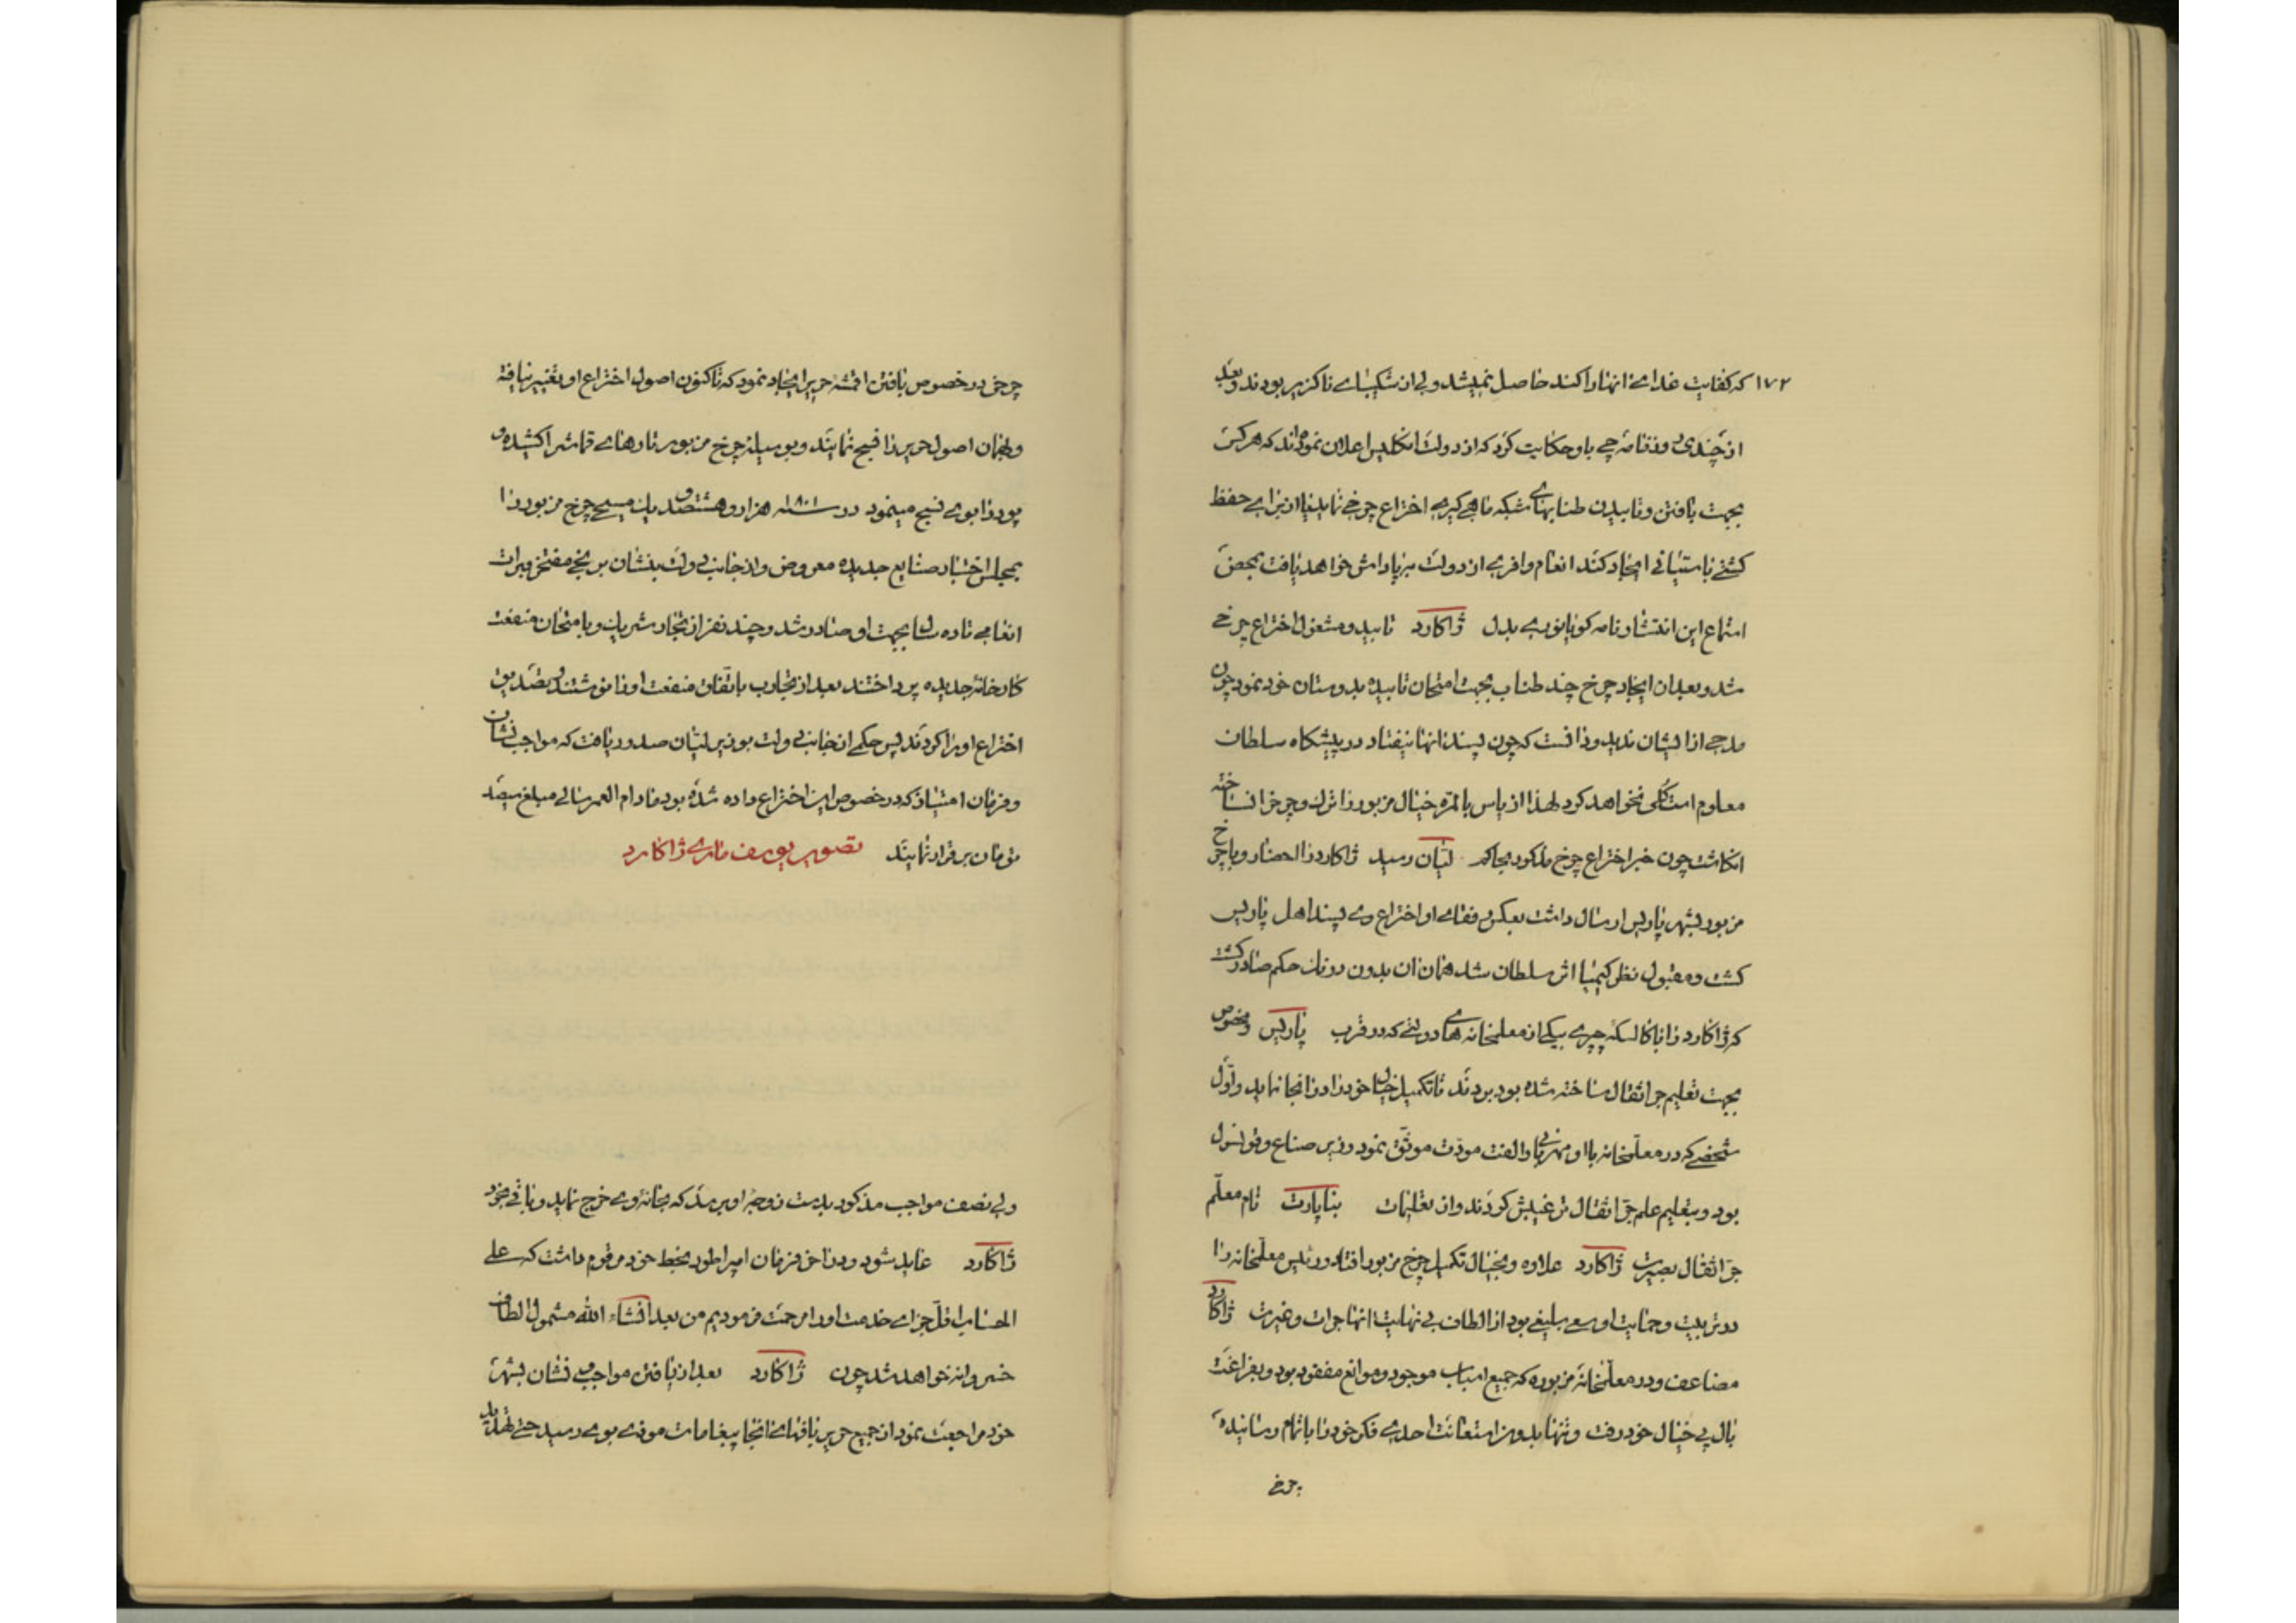 ۱۷۲ که کفایت غذای انها را کند حاصل نمیشد ولی از شکیبای ناگزیر بودند و بعد
از چندی روزنامه چی باو حکایت کرد که از دولت انگلیس اعلان نموده‌اند که هر کس
بجهت بافتن و تابیدن طنابهای شبکه ماهی گیری اختراع چرخی نماید یا از برای حفظ
کشتی با ستیانی ایجاد کند انعام وافری از دولت بپاداش خواهد یافت بمحض
استماع این انتشار نامه کویا نوری بدل ژاکارد تابید و مشغول اختراع چرخ
شد و بعد از ایجاد چرخ چند طناب بجهت امتحان تابیده بدوستان خود نمود چون
مدحی از ایشان ندید و دانست که چون پسند انها نیفتاد در پیشگاه سلطان
معلوم است کلی نخواهد کرد لهذا از یاس بالمره خیال مزبور را ترک و چرخ را نساخته
انکاشت چون خبر اختراع چرخ مذکور بحاکم لیان رسید ژاکارد را احضار و با چرخ
مزبور بشهر پاریس ارسال داشت بعکس رفقای او اختراع وی پسند اهل پاریس
گشت و مقبول نظر کیمیا اثر سلطان شد همان ان بدون درنک حکم صادر گشت
که ژاکارد را با کالسکه چپری بیکی از معلمخانه های دولتی که در قرب پاریس مخصوص
بجهت تعلیم جراثقال ساخته شده بود بردند تا تکمیل خیال خود را در انجا نماید و اول
شخصی که در معلمخانه با او مهربانی و الفت مودت موثق نمود وزیر صناع و قونسول
بود و بتعلیم علم جراثقال ترغیبش کردند و از تعلیمات بناپارت نام معلم
جراثقال بصیرت ژاکارد علاوه و بخیال تکمیل چرخ مزبور افتاد و رئیس معلمخانه را
در تربیت و حمایت او سعی بلیغی بود از الطاف بی نهایت انها جرات و غیرت ژاکارد
مضاعف و در معلمخانه مزبوره که جمیع اسباب موجود و موانع مفقود بود و بفراغت
بال پی خیال خود رفت و تنها بدون استعانت احدی فکر خود را باتمام رسانیده
چرخی
چرخی در خصوص بافتن اقمشه حریر ایجاد نمود که تاکنون اصول اختراع او تغییر نیافته
و بهمان اصول حریر را نسج نمایند و بوسیله چرخ مزبور تارهای قماش را کشیده و
پود را بوی نسج مینمود در سنه ۱۸۰۱ هزار و هشتصد و یک مسیحی چرخ مزبور را
بمجلس اختبار صنایع جدیده معروض و از جانب دولت بنشان برنجی مفتخر و برات
انعامی تا ده سال بجهت او صادر شد و چند نفر از تجار شریک و بامتحان منفعت
کارخانه جدیده پرداختند بعد از تجارب باتفاق منفعت او را نوشتند و تصدیق
اختراع او را کردند پس حکمی از جانب دولت بوزیر لیان صدور یافت که مواجب نشان
و فرمان امتیاز که در خصوص این اختراع داده شده بود مادام العمر سالی مبلغ سیصد
تومان برقرار نمایند تصویر یوسف ماری ژاکارد
ولی نصف مواجب مذکور بدست زوجه او برسد که بخانه وی خرج نماید و باقی بخود
ژاکارد عاید شود و در اخر فرمان امپراطور بخط خود مرقوم داشت که علی
الحساب اقل جزای خدمت او را مرحمت فرمودیم من بعد انشاء الله مشمول الطاف
خسروانه خواهد شد چون ژاکارد بعد از یافتن مواجب و نشان بشهر
خود مراجعت نمود از جمیع حریر بافهای انجا پیغامات موذی بوی رسید حتی تهدید